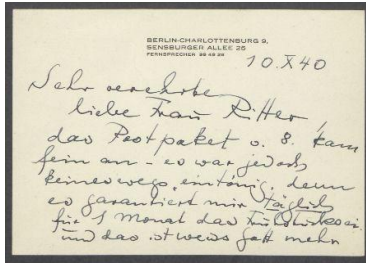 BERLIN-CHARLOTTENBURG 9,
SENSBURGER ALLEE 26
FERNSPRECHER
10.X40
Sehr verehrte
liebe Frau Ritter,
das Postpaket v. 8. kam
fein an – es war jedoch
keineswegs eintönig, denn
es garantiert mir täglich
für 1 Monat das
und das ist weiss Gott mehr